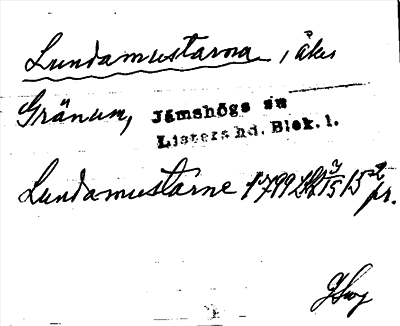 Lundamustarna, åker
Gränum,
Jämshögs sn
Listers hd. Blek. l.
Lundamustarne 1799
pr.